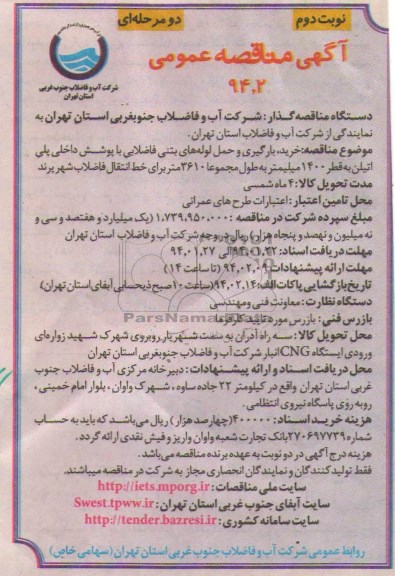 نوبت دوم
دو مرحله‌ای
آگهی مناقصه عمومی
۹۴٫۲
شرکت آب و فاضلاب جنوب غربی
استان تهران
دستگاه مناقصه‌گذار: شرکت آب و فاضلاب جنوبغربی استان تهران به
نمایندگی از شرکت آب و فاضلاب استان تهران.
موضوع مناقصه: خرید، بارگیری و حمل لوله‌های بتنی فاضلابی با پوشش داخلی پلی
اتیلن به قطر ۱۴۰۰ میلیمتر به طول مجموعا ۳۶۱۰ متر برای خط انتقال فاضلاب شهر پرند
مدت تحویل کالا: ۴ ماه شمسی
محل تامین اعتبار: اعتبارات طرح های عمرانی
مبلغ سپرده شرکت در مناقصه: ۱٫۷۳۹٫۹۵۰٫۰۰۰ (یک میلیارد و هفتصد و سی و
نه میلیون و نهصد و پنجاه هزار) ریال در وجه شرکت آب و فاضلاب استان تهران
مهلت دریافت اسناد: ۹۴٫۰۱٫۲۲ الی ۹۴٫۰۱٫۲۷
مهلت ارائه پیشنهادات: ۹۴٫۰۲٫۰۹ (تا ساعت ۱۴)
تاریخ بازگشایی پاکات الف: ۹۴٫۰۲٫۱۴ (ساعت ۱۰ صبح ذیحسابی آبفای استان تهران)
دستگاه نظارت: معاونت فنی و مهندسی
بازرس فنی: بازرس مورد تایید کارفرما
محل تحویل کالا: سه راه آدران به سمت شهریار روبروی شهرک شهید زواره‌ای
ورودی ایستگاه CNG انبار شرکت آب و فاضلاب جنوبغربی استان تهران
محل دریافت اسناد و ارائه پیشنهادات: دبیرخانه مرکزی آب و فاضلاب جنوب
غربی استان تهران واقع در کیلومتر ۲۲ جاده ساوه، شهرک واوان، بلوار امام خمینی،
روبه روی پاسگاه نیروی انتظامی.
هزینه خرید اسناد: ۴۰۰۰۰۰ (چهارصد هزار) ریال می‌باشد که باید به حساب
شماره ۲۷۰۶۹۷۷۳۹ بانک تجارت شعبه واوان واریز و فیش نقدی ارائه گردد.
هزینه درج آگهی در دو نوبت به عهده برنده مناقصه می‌باشد.
فقط تولید کنندگان و نمایندگان انحصاری مجاز به شرکت در مناقصه میباشند.
سایت ملی مناقصات: http://iets.mporg.ir
سایت آبفای جنوب غربی استان تهران: Swest.tpww.ir
سایت سامانه کشوری: http://tender.bazresi.ir
روابط عمومی شرکت آب و فاضلاب جنوب غربی استان تهران (سهامی خاص)